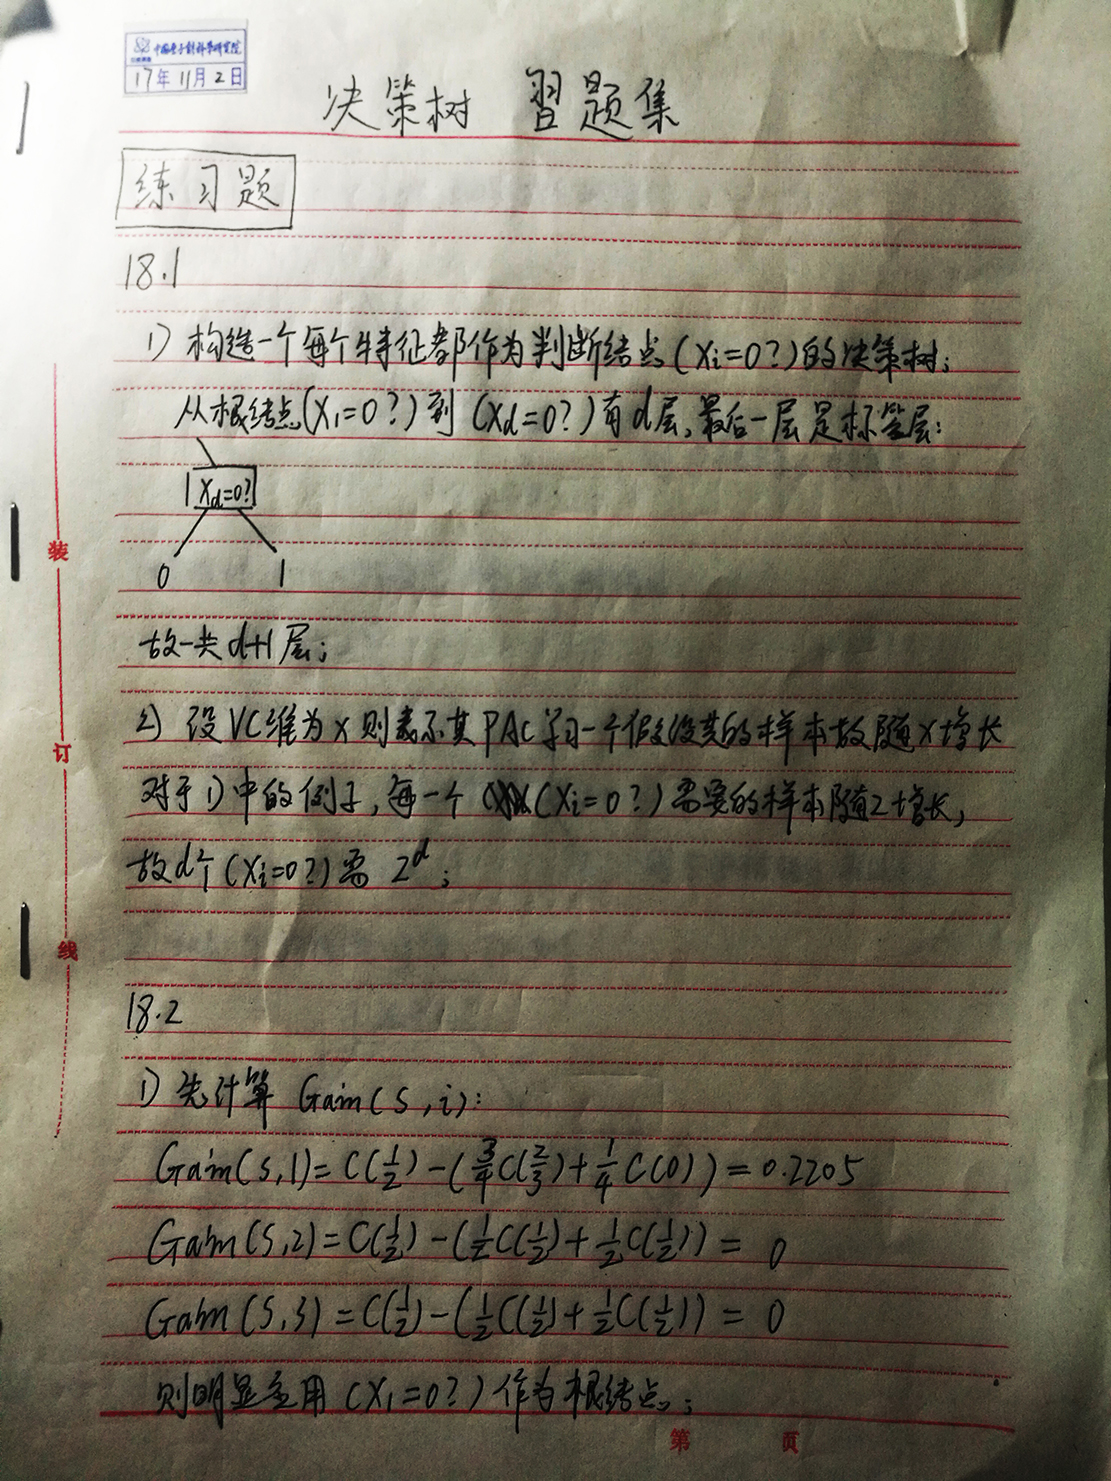 中国电子科学研究院
17年11月2日
决策树 習题集
练习题
18.1
1) 构造一个每个特征都作为判断结点(Xi=0?)的决策树;
从根结点(X1=0?)到(Xd=0?)有d层,最后一层是标签层:
Xd=0?
0 1
故一共d+1层;
2) 设VC维为x则表示其PAC学习一个假设类的样本故随x增长
对于1)中的例子,每一个(Xi=0?)需要的样本随2增长,
故d个(Xi=0?)需 2^d;
装
订
线
18.2
1) 先计算 Gain(S,i):
Gain(S,1)=C(1/2)-(3/4C(2/3)+1/4C(0))=0.2205
Gain(S,2)=C(1/2)-(1/2C(1/2)+1/2C(1/2))=0
Gain(S,3)=C(1/2)-(1/2C(1/2)+1/2C(1/2))=0
则明显应用(X1=0?)作为根结点;
第 页